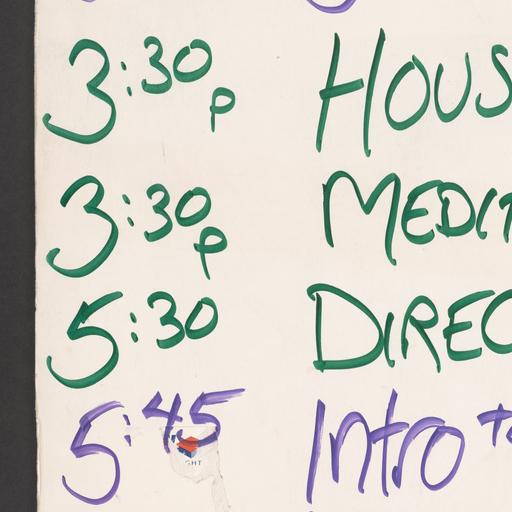 3:30p HOUS
3:30p MEDIT
5:30 DIREC
5:45 Intro to
GHT